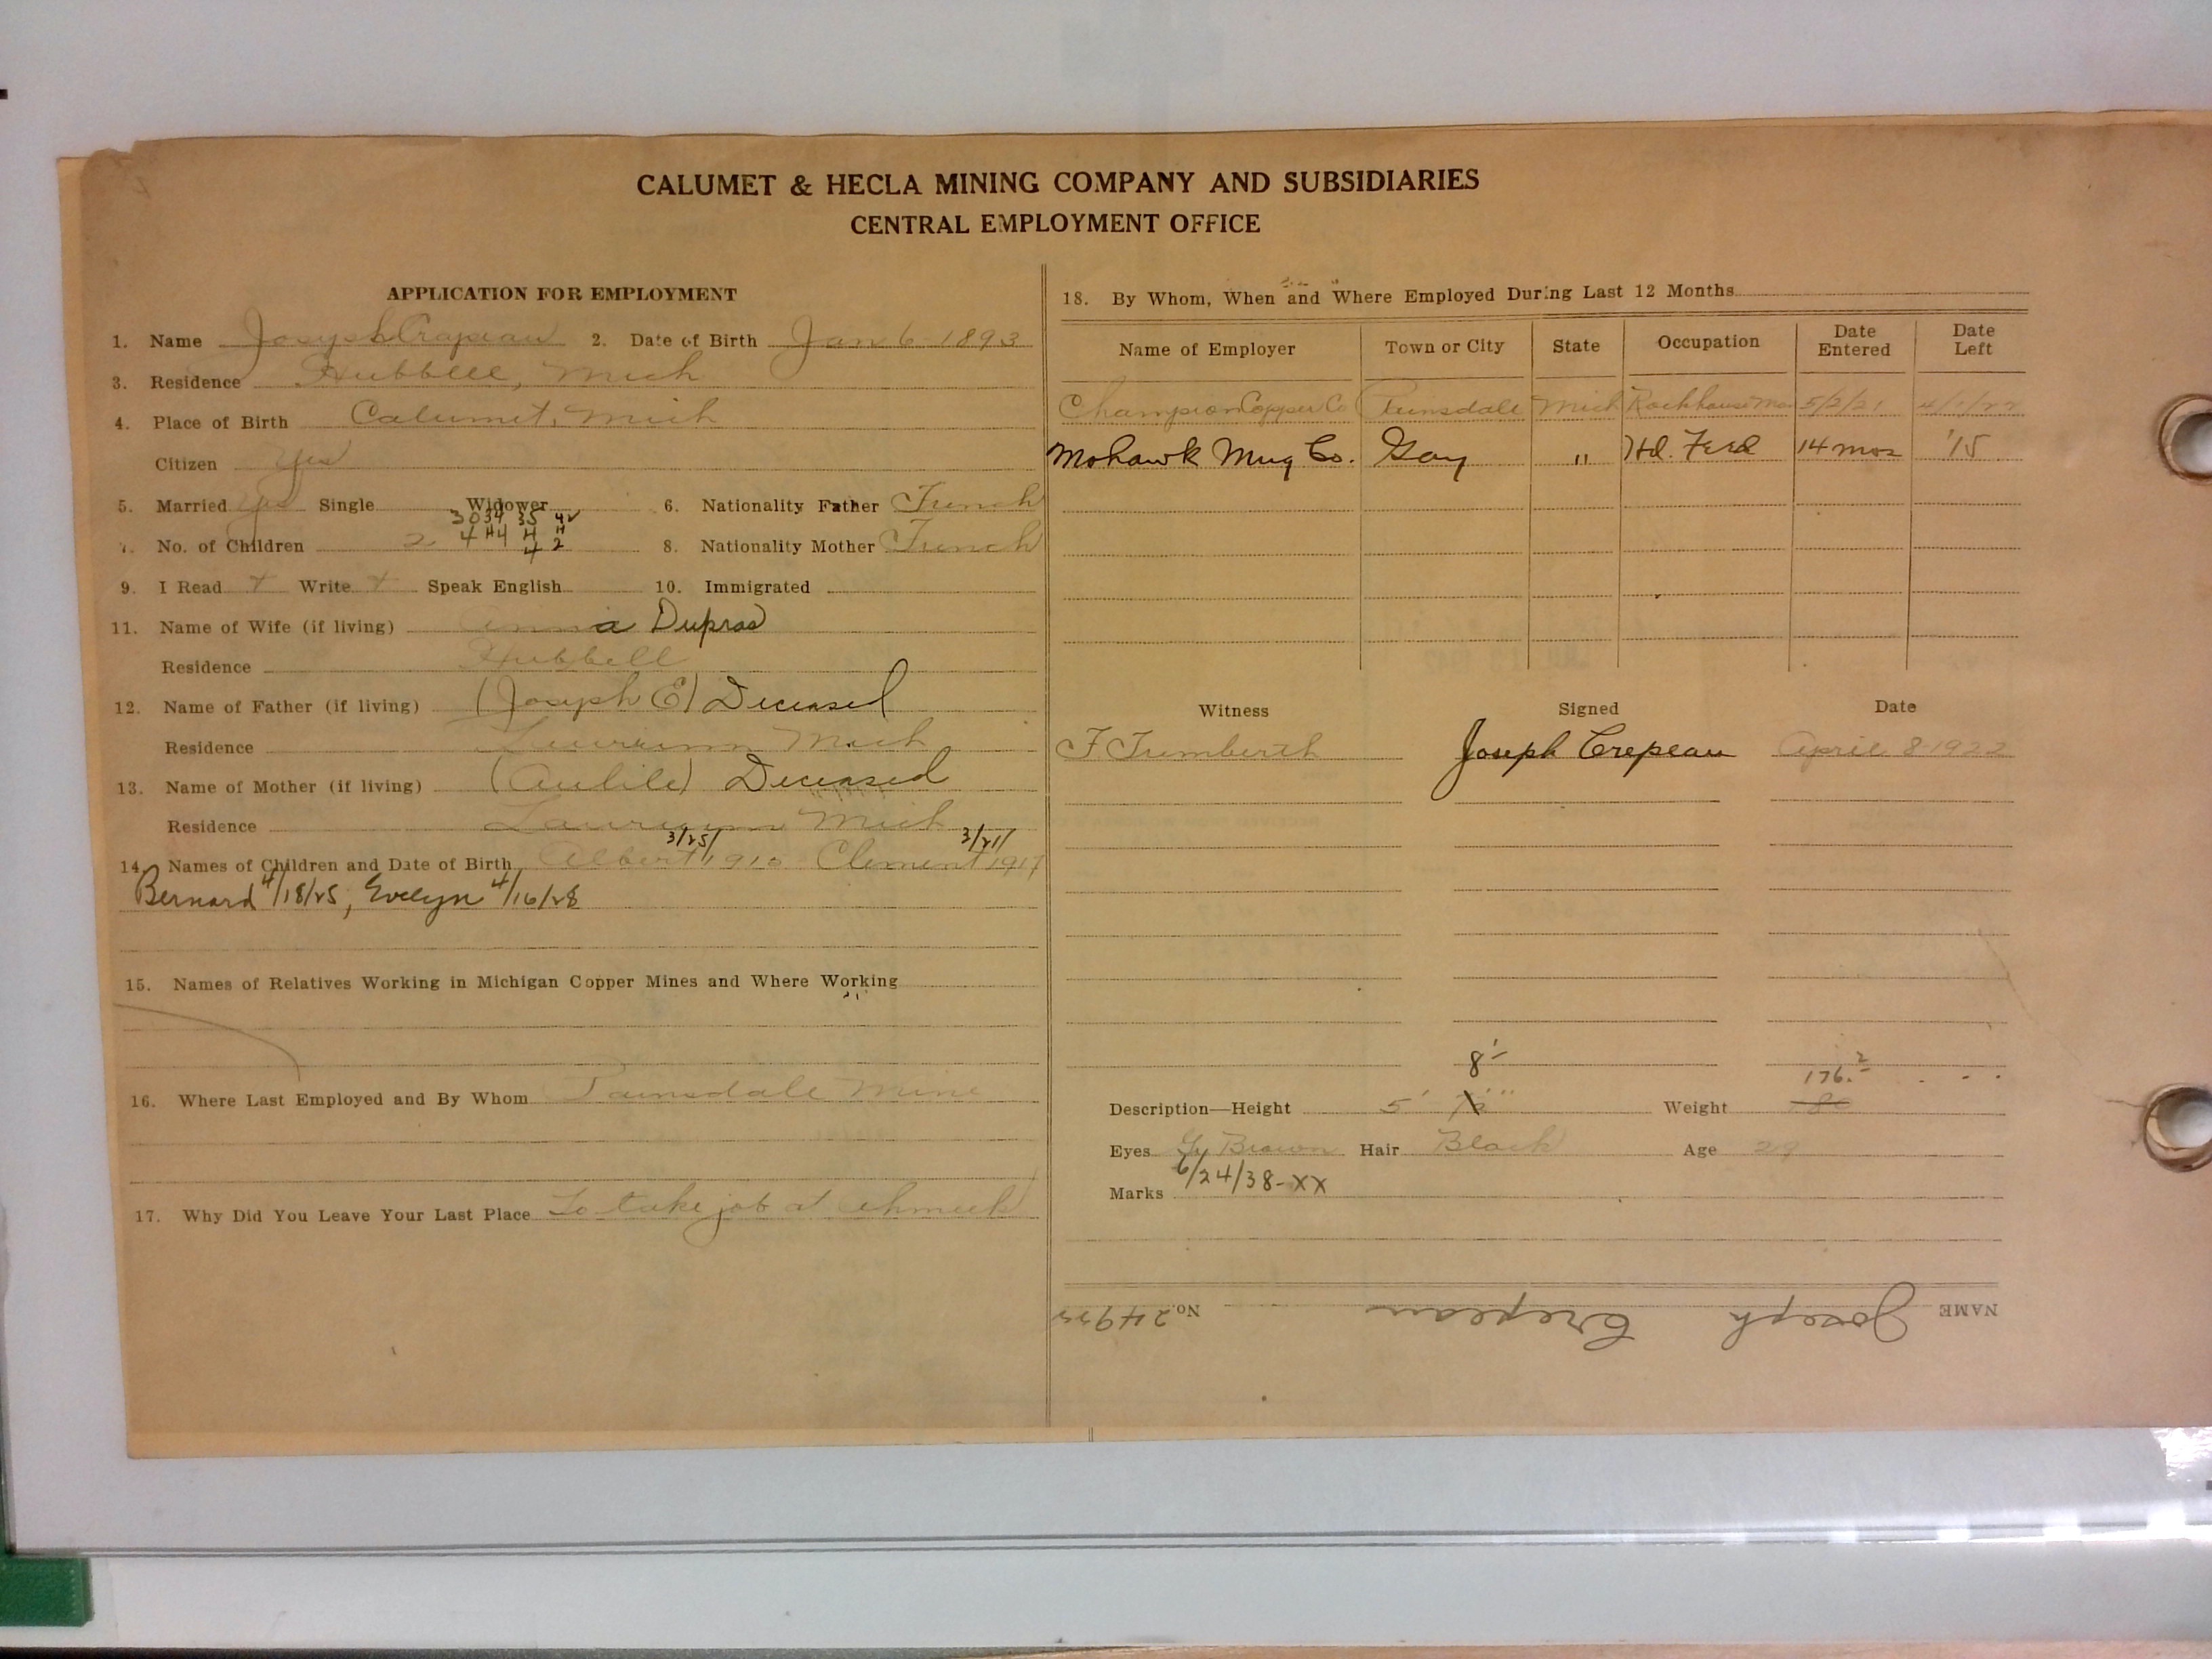 CALUMET & HECLA MINING COMPANY AND SUBSIDIARIES
CENTRAL EMPLOYMENT OFFICE
APPLICATION FOR EMPLOYMENT
1. Name Joseph Crapeau 2. Date of Birth Jan 6 1893
3. Residence Hubbell, Mich
4. Place of Birth Calumet, Mich
Citizen Yes
5. Married yes Single Widower 6. Nationality Father French
30 34 35 42
7. No. of Children 2 4 H4 H H 8. Nationality Mother French
4 2
9. I Read Write Speak English 10. Immigrated
11. Name of Wife (if living) Anna Dupras
Residence Hubbell
12. Name of Father (if living) (Joseph E) Deceased
Residence Laurium Mich
13. Name of Mother (if living) Deceased
Residence Laurium Mich
3/25/ 3/21/
14. Names of Children and Date of Birth Albert 1910 Clement 1917
Bernard 4/18/25, Evelyn 4/16/28
15. Names of Relatives Working in Michigan Copper Mines and Where Working
16. Where Last Employed and By Whom Painesdale Mine
17. Why Did You Leave Your Last Place To take job at Ahmeek
18. By Whom, When and Where Employed During Last 12 Months
Name of Employer Town or City State Occupation Date Entered Date Left
Champion Copper Co Painsdale Mich Rockhouse 5/2/21 4/1/22
Mohawk Mng Co. Gay " Hd. Feed 14 mos '15
Witness Signed Date
Joseph Crepeau April 8 1922
8 176.
Description—Height 5' Weight 180
Eyes Brown Hair Black Age 29
6/24/38-XX
Marks
NAME Joseph Crepeau No.